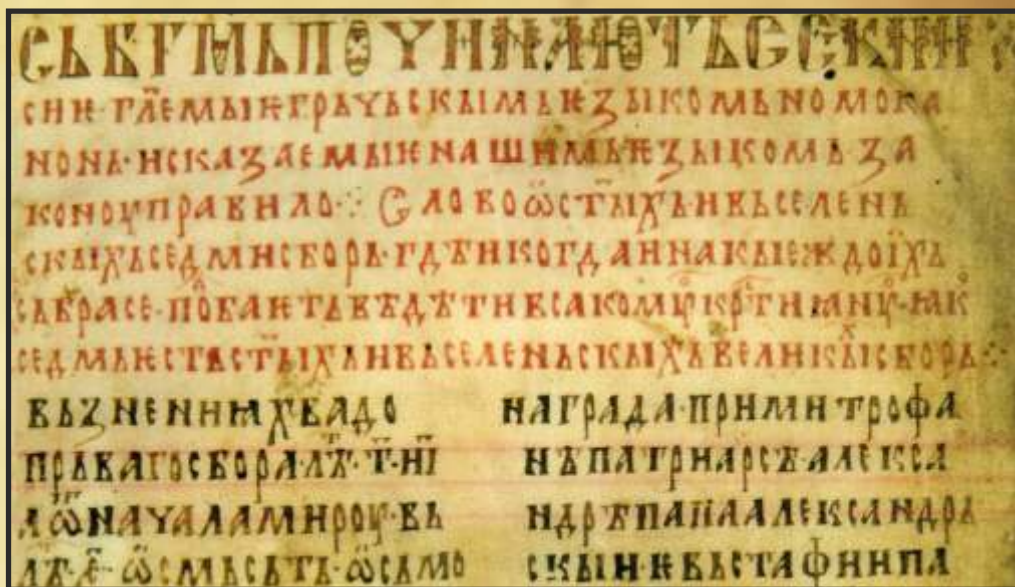 СЬ БГ҃МЬ ПОЧИНАЮТЬ СЕ КНИ
сиѥ· гл҃ѥмыѥ грьчьскымь ѥзыкомь номока
нонь· и сказаѥмыѥ нашимь ѥзыкомь за
коноу правило ⁘ Слово ѿ ст҃ыхь и вьселень
скыхь седми сборь· где и когда и на кыеждо ихь
сьбра се· подобаѥть ведети всакомоу крстиѩнꙋ· ꙗко
седмь ѥсть ст҃ыхь и вьселеньскыхь великыихь сборь ⁘
Вьзнениꙗ хв҃а до
прьваго сбора· лѣт· т҃· и҃і
ѿ начала мироу· вь
лѣ· ҂е҃· ѿсмьсьть· ѿсьмо
на града· при митрофа
нѣ патриарсѣ· алекса
ндрѣ папа александрь
скыи· ѥвьстафии па